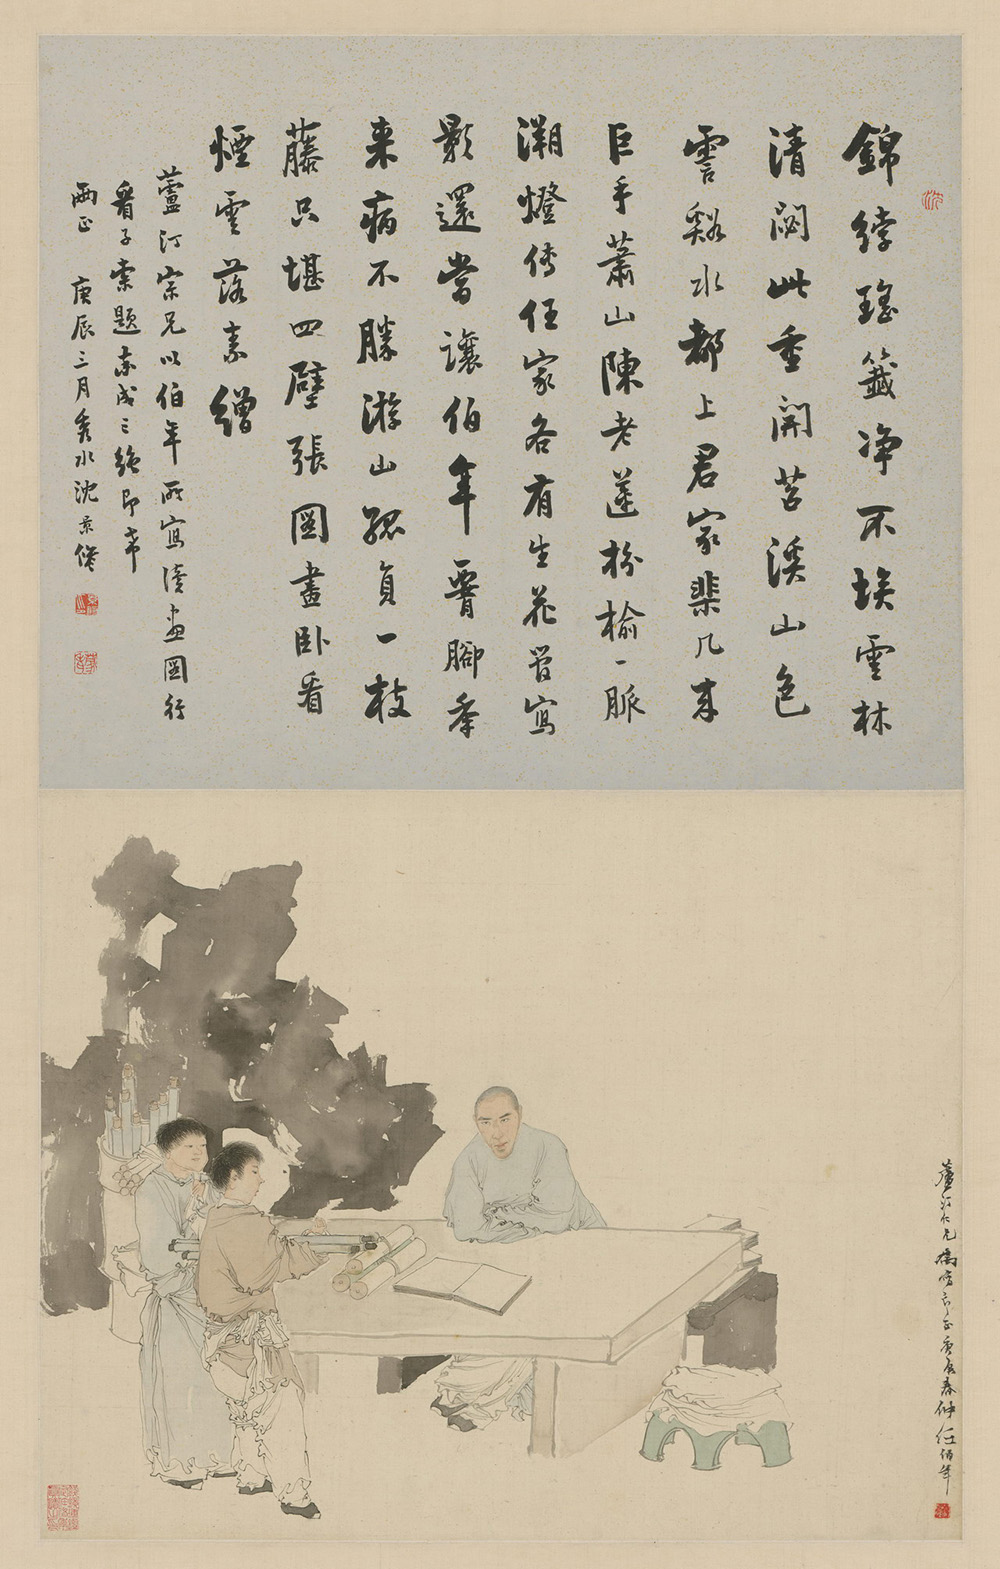 錦綍瑤籤淨不埃雲林
清閟此重開苕溪山色
霅谿水都上君家棐几來
巨手蕭山陳老蓮枌榆一脈
溯燈傳任家各有生花管寫
影還當讓伯年霄腳季
来病不勝游山孤負一枝
藤只堪四壁張圖畫卧看
煙雲落素繒
蘆汀宗兄以伯年所寫讀畫圖行
看子索題率成三絕即希
兩正 庚辰三月秀水沈景修
蘆汀仁兄 庚辰春仲任伯年